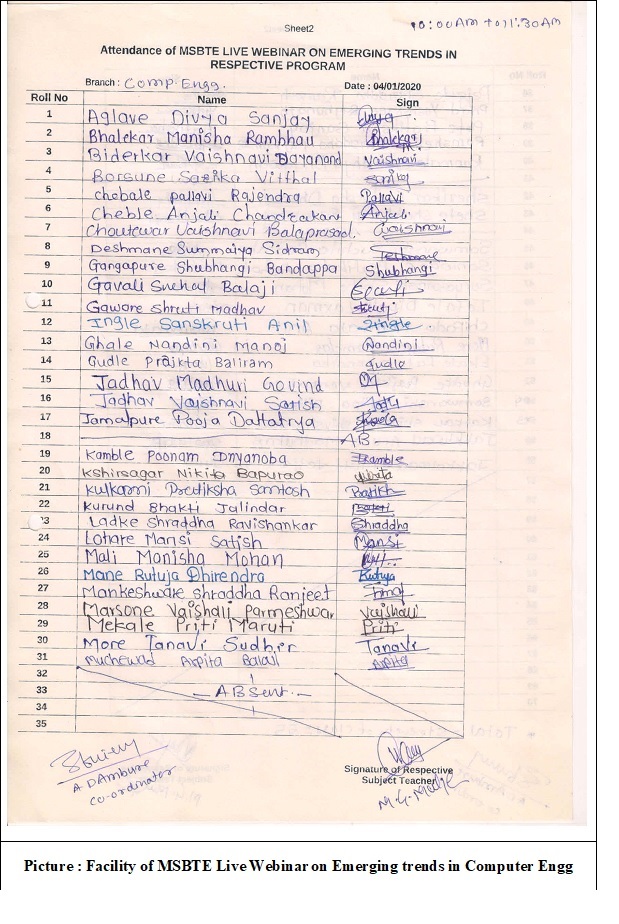 Sheet2
10:00AM to 11:30AM
Attendance of MSBTE LIVE WEBINAR ON EMERGING TRENDS IN
RESPECTIVE PROGRAM
Branch : Comp. Engg.
Date : 04/01/2020
Roll No Name Sign
1 Aglave Divya Sanjay
2 Bhalekar Manisha Rambhau Bhalekar
3 Biderkar Vaishnavi Dayanand Vaishnavi
4 Borsune Sarika Vitthal
5 chobale pallavi Rajendra Pallavi
6 Cheble Anjali Chandrakant Anjali
7 Choutewar Vaishnavi Balaprasad. Vaishnavi
8 Deshmane Summaiya Sidram
9 Gangapure Shubhangi Bandappa Shubhangi
10 Gavali Snehal Balaji
11 Gawore Shruti Madhav
12 Ingle Sanskruti Anil SIngle
13 Ghale Nandini Manoj Nandini
14 Gudle Prajkta Baliram Gudle
15 Jadhav Madhuri Govind
16 Jadhav Vaishnavi Satish
17 Jamalpure Pooja Dattatrya
18 AB
19 Kamble Poonam Dnyanoba
20 Kshirsagar Nikita Bapurao
21 Kulkarni Pratiksha Santosh
22 Kurund Bhakti Jalindar
23 Ladke Shraddha Ravishankar Shraddha
24 Lohare Mansi Satish Mansi
25 Mali Monisha Mohan
26 Mane Rutuja Dhirendra Rutuja
27 Mankeshware Shraddha Ranjeet
28 Marsone Vaishali Parmeshwar Vaishali
29 Mekale Priti Maruti Priti
30 More Tanavi Sudhir Tanavi
31 Muchewad Arpita Balaji Arpita
32
33 ABsent
34
35
A DAmbure
co-ordinator
Signature of Respective
Subject Teacher
Picture : Facility of MSBTE Live Webinar on Emerging trends in Computer Engg